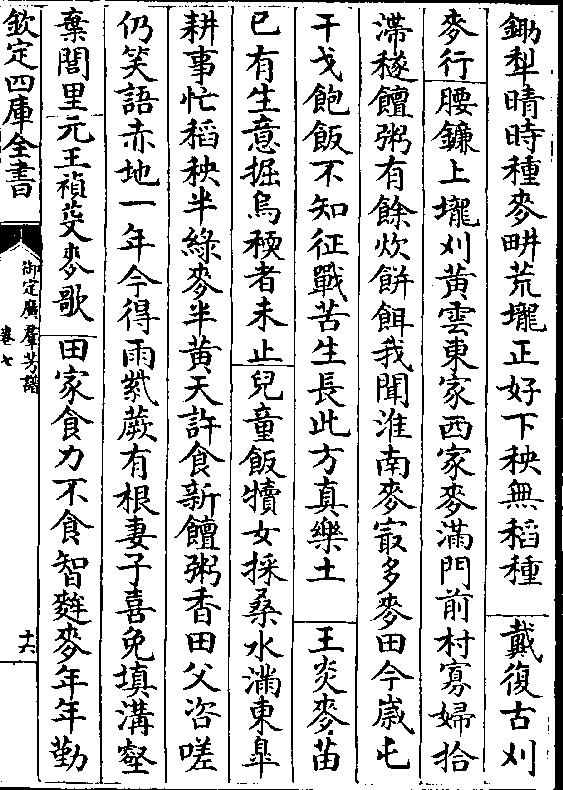 鋤犁晴時種麥畊荒壠正好下秧無稻種　戴復古刈
麥行　腰鎌上壠刈黃雲東家西家麥滿門前村寡婦拾
滯穟饘粥有餘炊餅餌我聞淮南麥㝡多麥田今歲屯
干戈飽飯不知征戰苦生長此方真樂土　王炎麥苗
已有生意掘烏䅘者未止　兒童飯犢女採桑水滿東臯
耕事忙稻秧半綠麥半黃天許食新饘粥香田父咨嗟
仍笑語赤地一年今得雨鳬蕨有根妻子喜免填溝壑
棄閭里　元王禎芟麥歌　田家食力不食智麰麥年年勤
欽定四庫全書
御定廣羣芳譜
卷七
十六